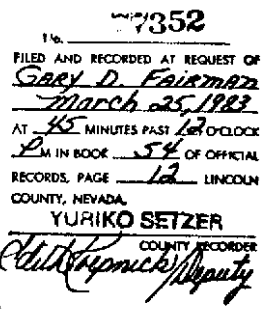 No. 77352
FILED AND RECORDED AT REQUEST OF
GARY D. FAIRMAN
March 25, 1983
AT 45 MINUTES PAST 12 O'CLOCK
P M IN BOOK 54 OF OFFICIAL
RECORDS, PAGE 12 LINCOLN
COUNTY, NEVADA.
YURIKO SETZER
COUNTY RECORDER
Deputy